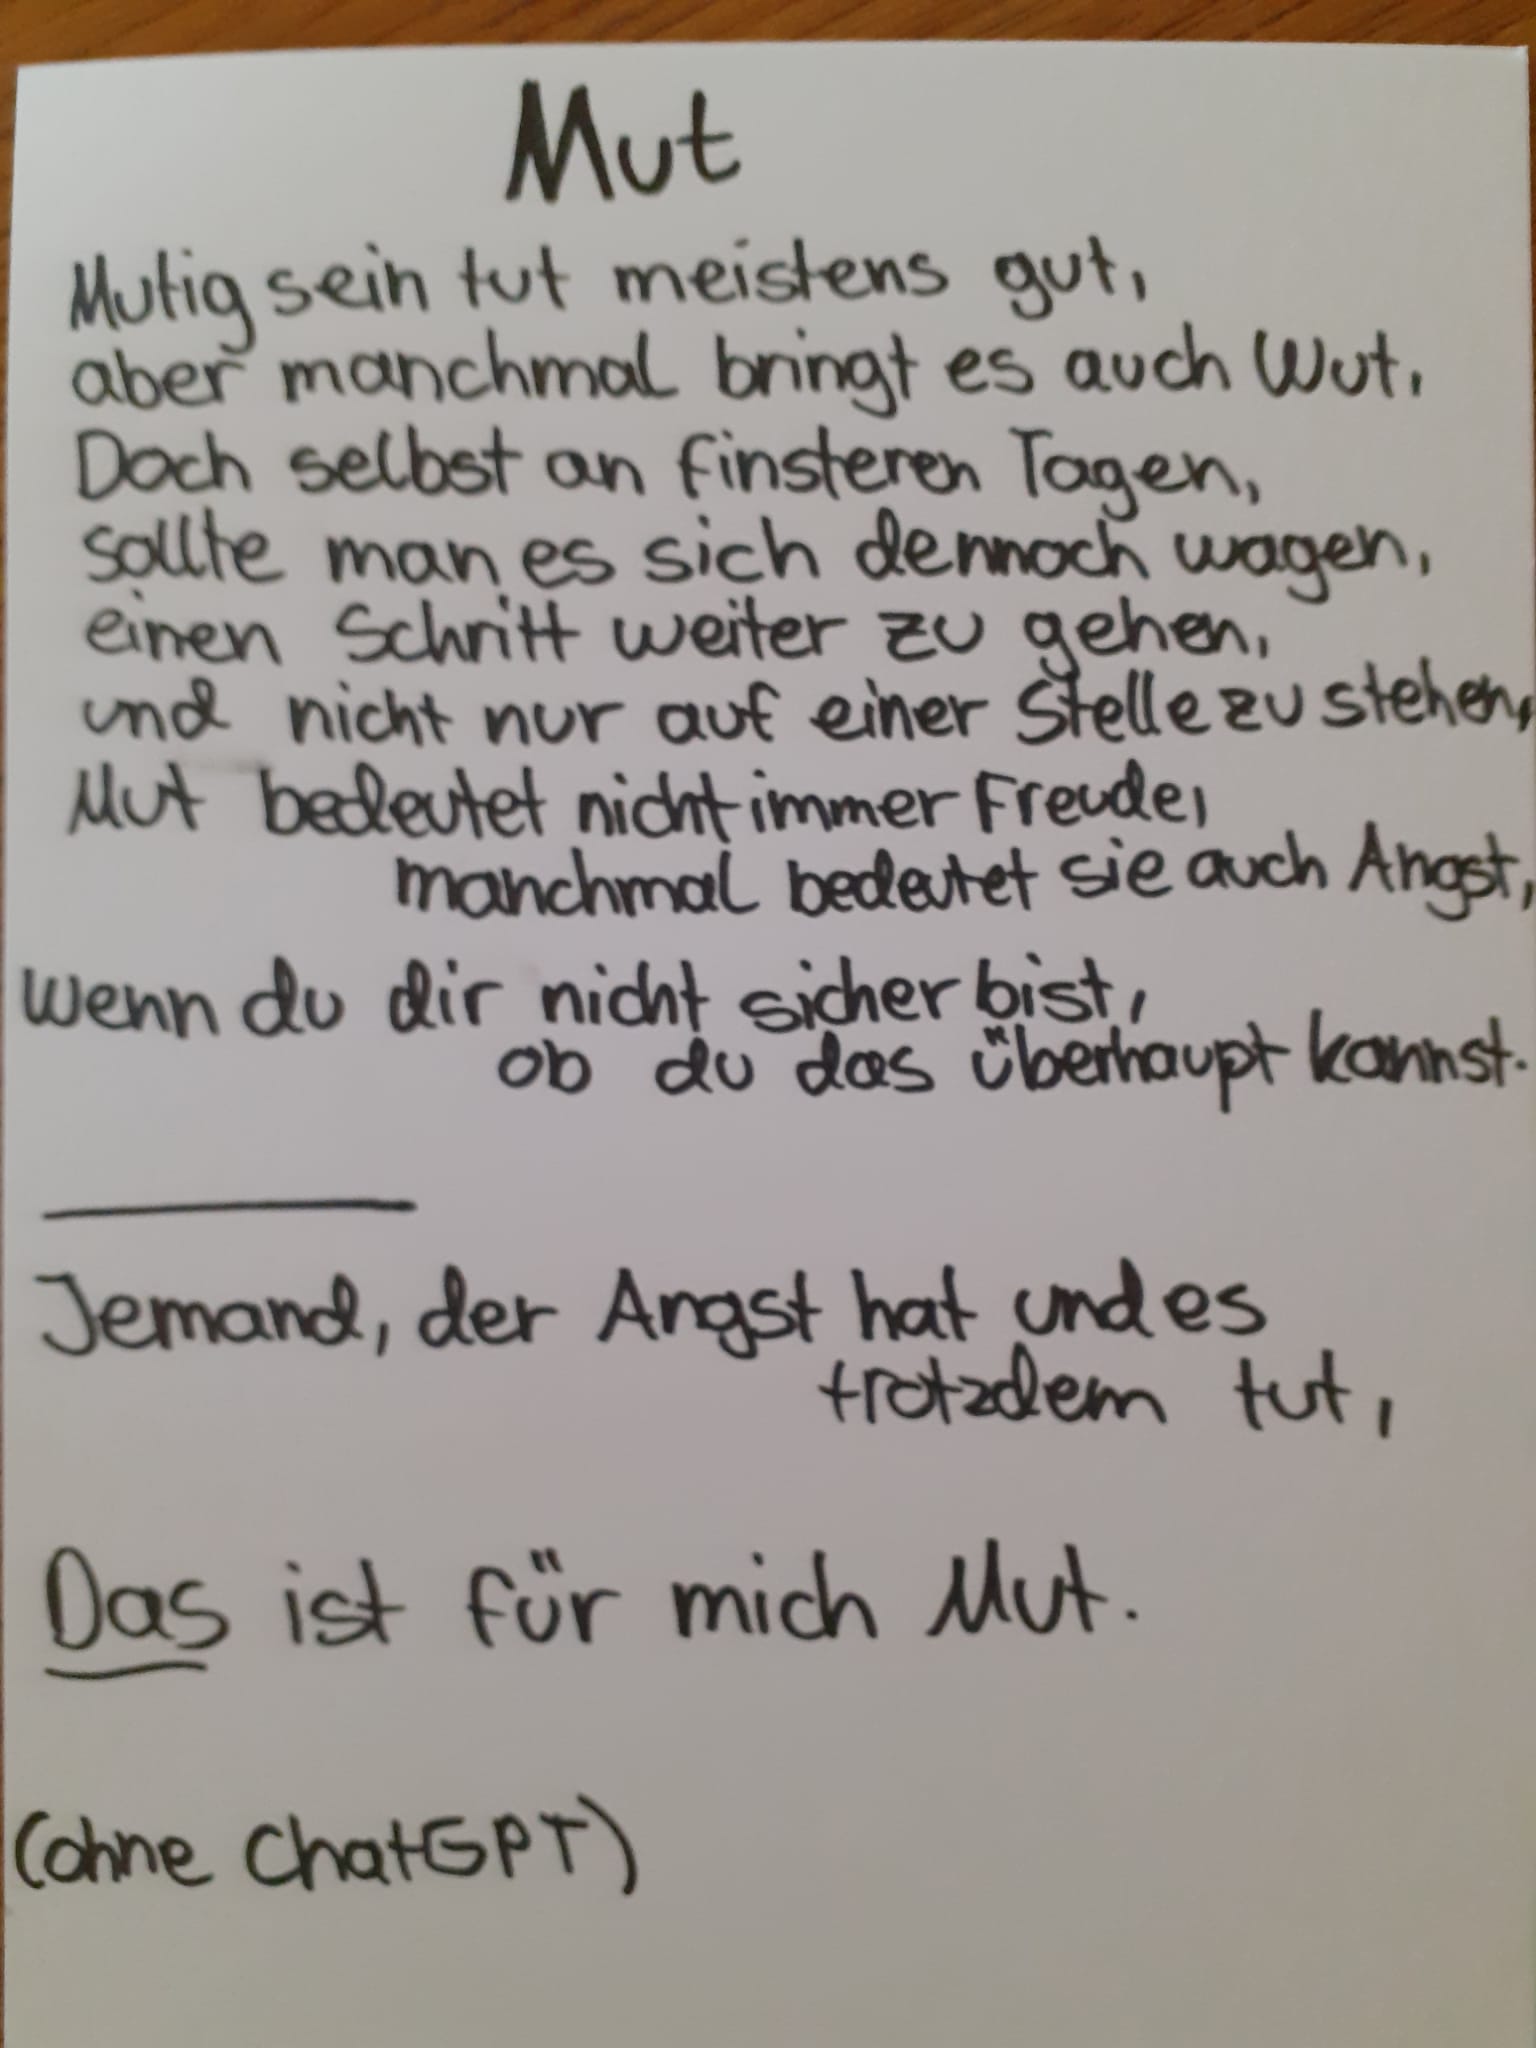 Mut
Mutig sein tut meistens gut,
aber manchmal bringt es auch Wut.
Doch selbst an finsteren Tagen,
sollte man es sich dennoch wagen,
einen Schritt weiter zu gehen,
und nicht nur auf einer Stelle zu stehen,
Mut bedeutet nicht immer Freude,
manchmal bedeutet sie auch Angst,
wenn du dir nicht sicher bist,
ob du das überhaupt kannst.
Jemand, der Angst hat und es
trotzdem tut,
Das ist für mich Mut.
(ohne ChatGPT)